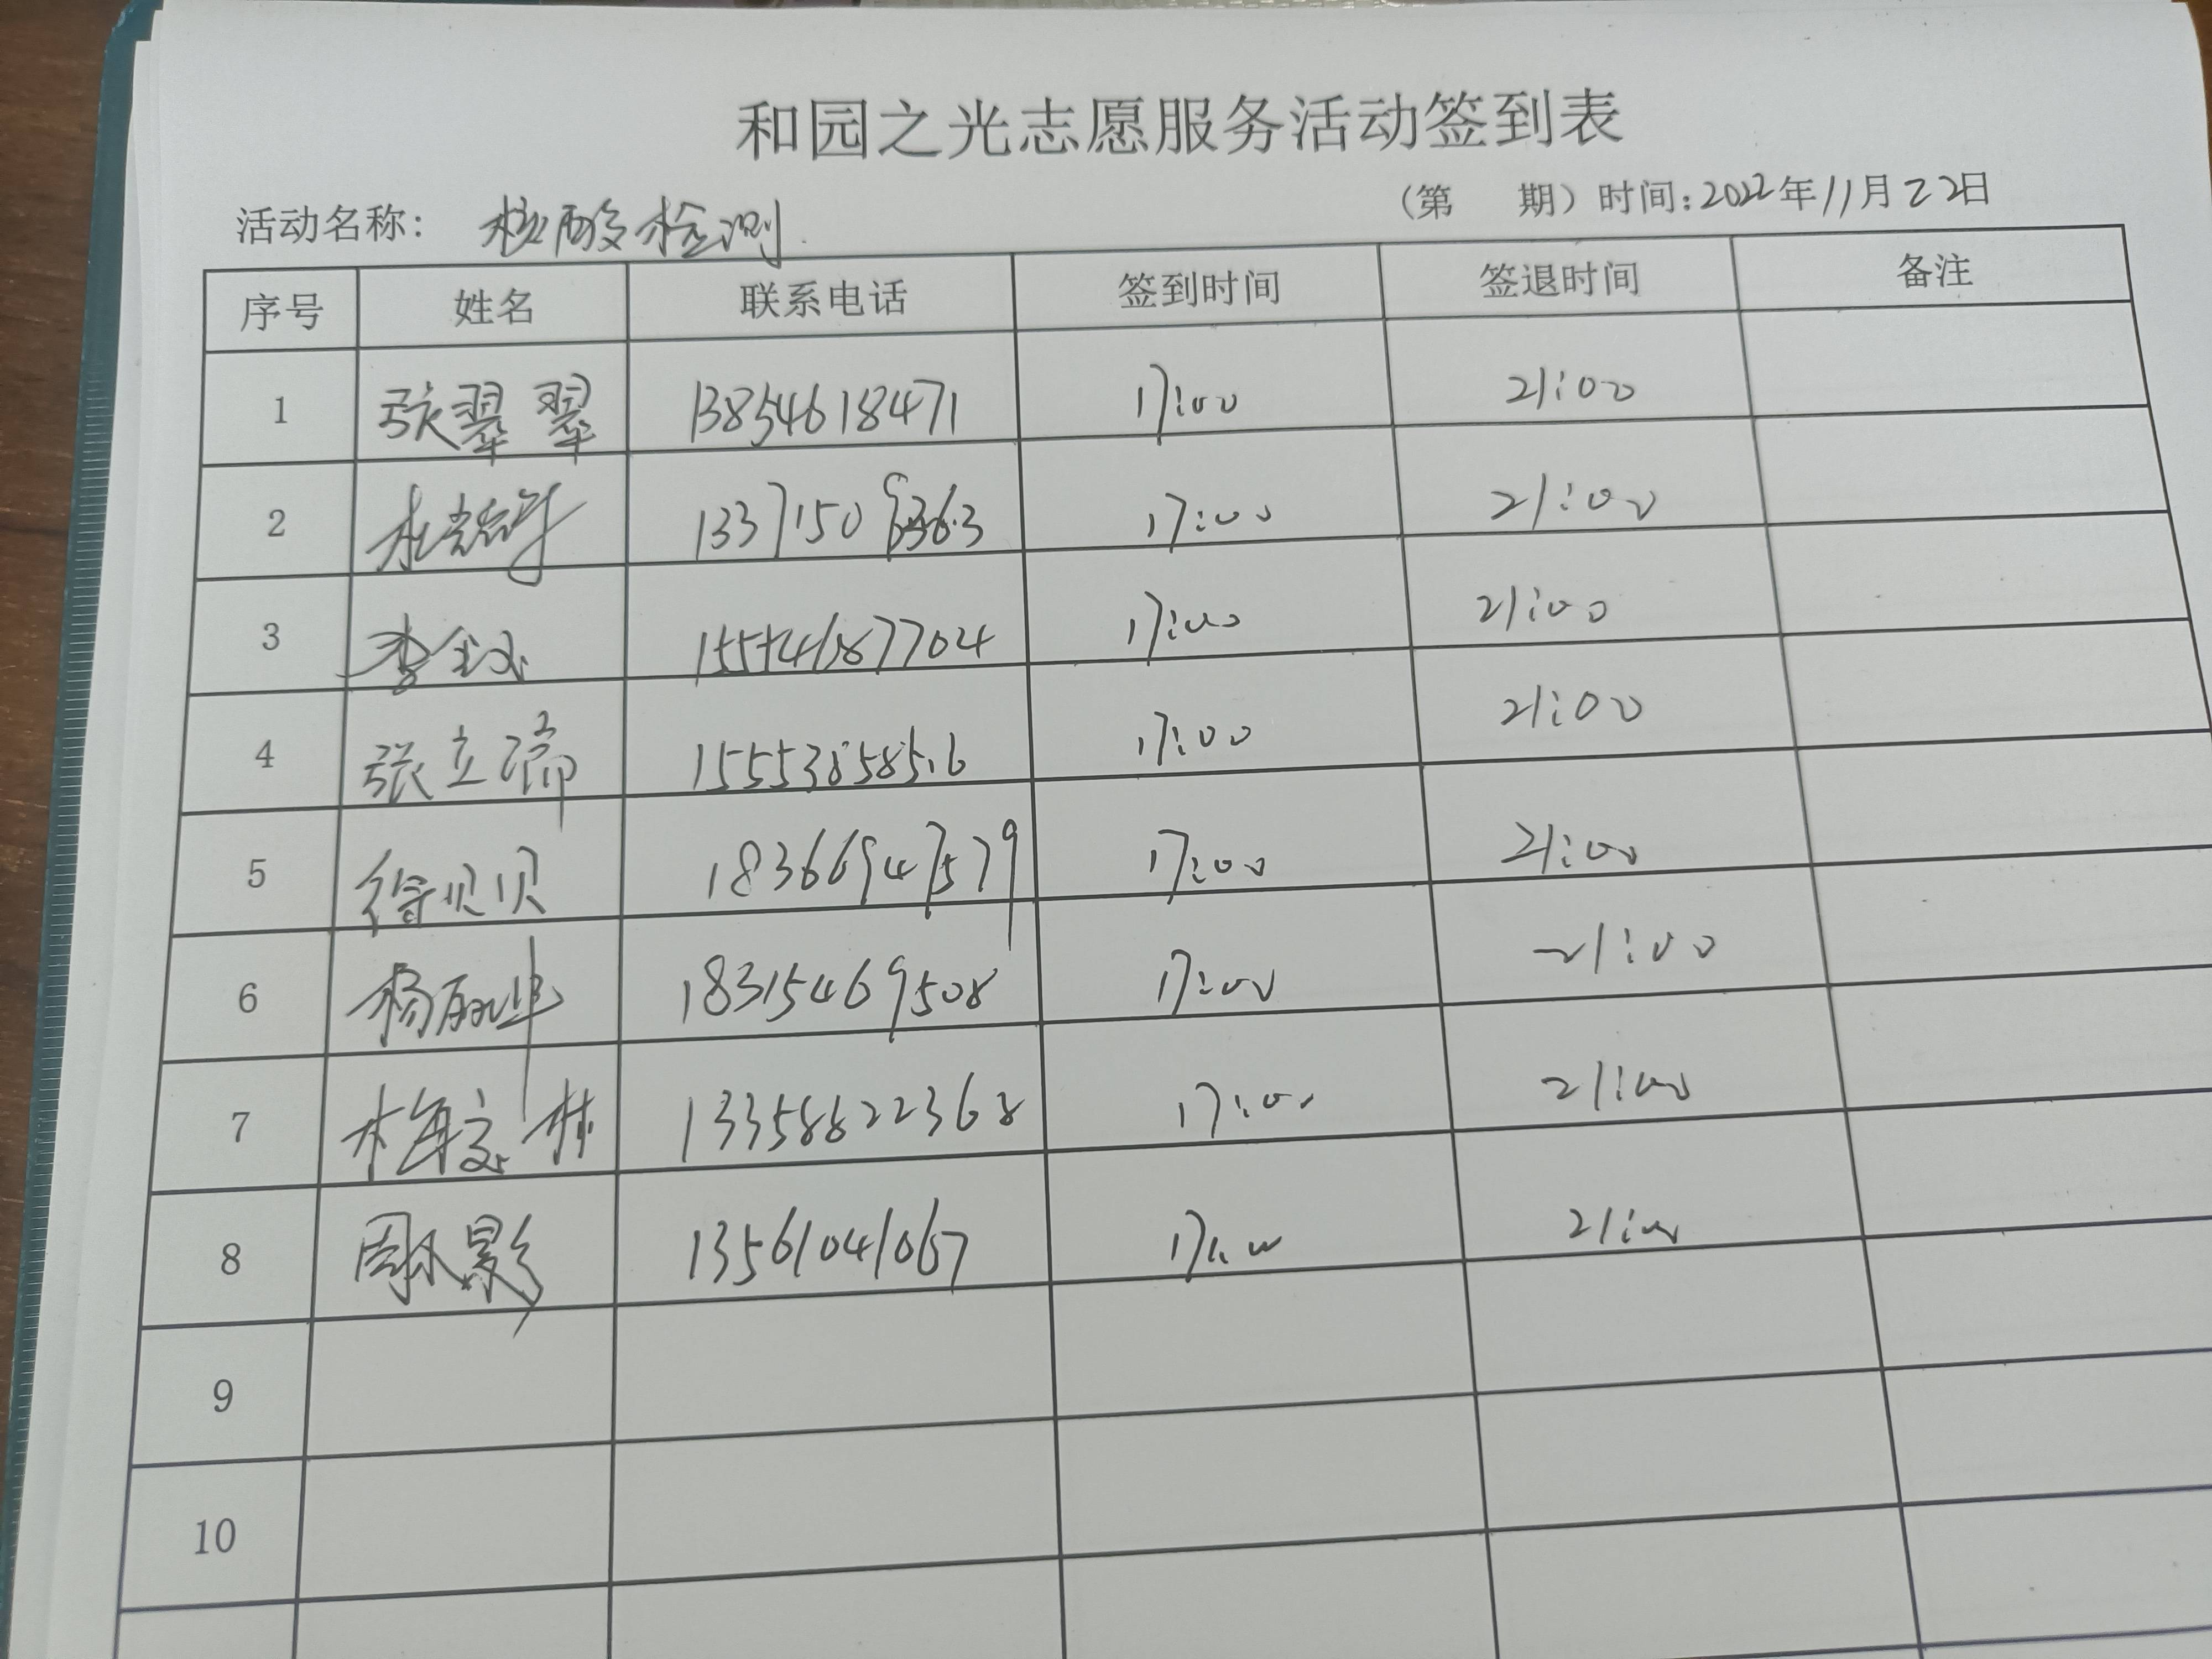 和园之光志愿服务活动签到表
活动名称: 核酸检测 (第 期) 时间:2022年11月22日
序号 姓名 联系电话 签到时间 签退时间 备注
1 张翠翠 13854618471 17:00 21:00
2 17:00 21:00
3 17:00 21:00
4 张立瑞 17:00 21:00
5 徐贝贝 18366947579 17:00 21:00
6 18315469508 17:00 21:00
7 13358822368 17:00 21:00
8 13561041067 17:00 21:00
9
10